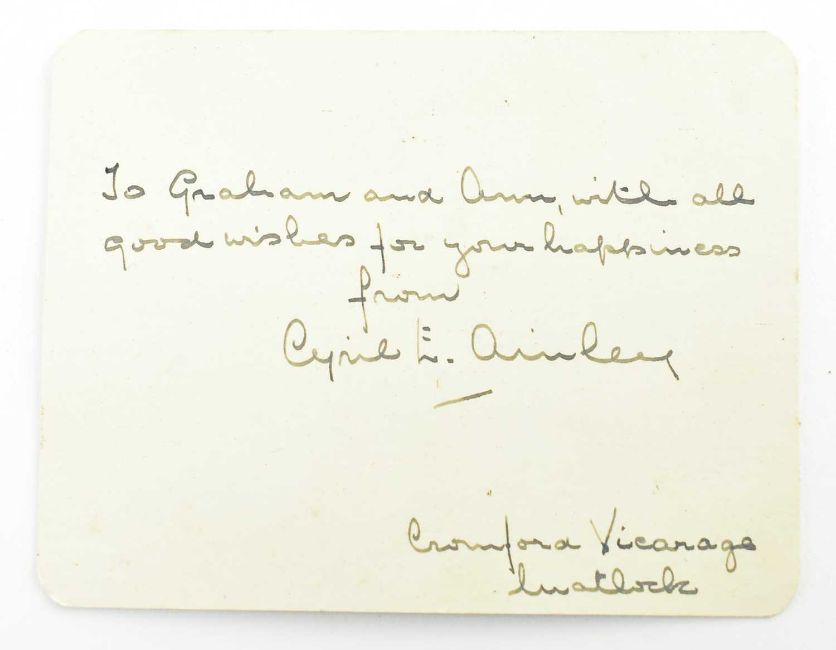 To Graham and Ann, with all
good wishes for your happiness
from
Cyril E. Ainley
Cromford Vicarage
Matlock